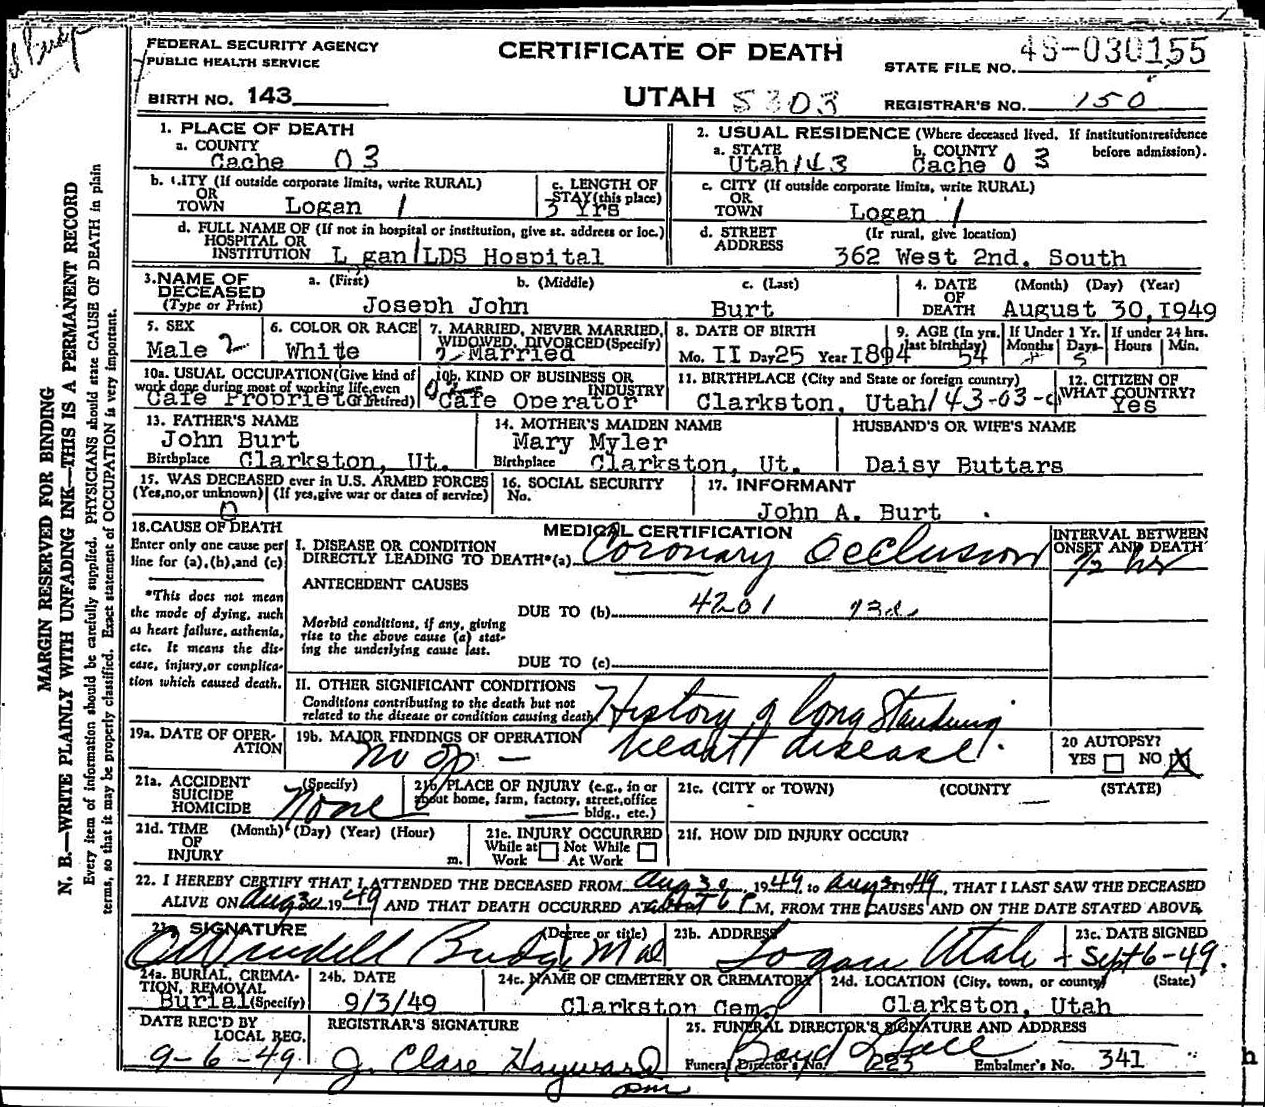 FEDERAL SECURITY AGENCY
PUBLIC HEALTH SERVICE
CERTIFICATE OF DEATH
STATE FILE NO. 48-030155
BIRTH NO. 143
UTAH 5303
REGISTRAR'S NO. 150
MARGIN RESERVED FOR BINDING
N. B.—WRITE PLAINLY WITH UNFADING INK—THIS IS A PERMANENT RECORD
Every item of information should be carefully supplied. PHYSICIANS should state CAUSE OF DEATH in plain
terms, so that it may be properly classified. Exact statement of OCCUPATION is very important.
1. PLACE OF DEATH
a. COUNTY
Cache 03
2. USUAL RESIDENCE (Where deceased lived. If institution:residence
before admission).
a. STATE b. COUNTY
Utah 143 Cache 0 3
b. CITY (If outside corporate limits, write RURAL)
OR
TOWN Logan 1
c. LENGTH OF
STAY(this place)
3 Yrs
c. CITY (If outside corporate limits, write RURAL)
OR
TOWN Logan 1
d. FULL NAME OF (If not in hospital or institution, give st. address or loc.)
HOSPITAL OR
INSTITUTION L gan LDS Hospital
d. STREET (If rural, give location)
ADDRESS 362 West 2nd. South
3. NAME OF a. (First) b. (Middle) c. (Last)
DECEASED
(Type or Print) Joseph John Burt
4. DATE (Month) (Day) (Year)
OF
DEATH August 30,1949
5. SEX
Male 2
6. COLOR OR RACE
White
7. MARRIED, NEVER MARRIED,
WIDOWED, DIVORCED(Specify)
2 Married
8. DATE OF BIRTH
Mo. II Day 25 Year I894
9. AGE (In yrs.
last birthday)
54
If Under 1 Yr.
Months Days
If under 24 hrs.
Hours Min.
10a. USUAL OCCUPATION(Give kind of
work done during most of working life,even
if retired)
Cafe Proprietor
10b. KIND OF BUSINESS OR
INDUSTRY
Cafe Operator
11. BIRTHPLACE (City and State or foreign country)
Clarkston, Utah 143-03-
12. CITIZEN OF
WHAT COUNTRY?
Yes
13. FATHER'S NAME
John Burt
Birthplace Clarkston, Ut.
14. MOTHER'S MAIDEN NAME
Mary Myler
Birthplace Clarkston, Ut.
HUSBAND'S OR WIFE'S NAME
Daisy Buttars
15. WAS DECEASED ever in U.S. ARMED FORCES
(Yes,no,or unknown) (If yes,give war or dates of service)
0
16. SOCIAL SECURITY
No.
17. INFORMANT
John A. Burt
18. CAUSE OF DEATH
Enter only one cause per
line for (a),(b),and (c)
*This does not mean
the mode of dying, such
as heart failure, asthenia,
etc. It means the dis-
ease, injury,or complica-
tion which caused death.
MEDICAL CERTIFICATION
I. DISEASE OR CONDITION
DIRECTLY LEADING TO DEATH*(a) Coronary Occlusion
INTERVAL BETWEEN
ONSET AND DEATH
1/2 hr
ANTECEDENT CAUSES
DUE TO (b) 4201
Morbid conditions, if any, giving
rise to the above cause (a) stat-
ing the underlying cause last.
DUE TO (c)
II. OTHER SIGNIFICANT CONDITIONS
Conditions contributing to the death but not
related to the disease or condition causing death
History of long standing
heart disease.
19a. DATE OF OPER-
ATION
19b. MAJOR FINDINGS OF OPERATION
no op —
20 AUTOPSY?
YES NO X
21a. ACCIDENT (Specify)
SUICIDE
HOMICIDE None
21b. PLACE OF INJURY (e.g., in or
about home, farm, factory, street,office
bldg., etc.)
21c. (CITY or TOWN) (COUNTY) (STATE)
21d. TIME (Month) (Day) (Year) (Hour)
OF
INJURY m.
21e. INJURY OCCURRED
While at Not While
Work At Work
21f. HOW DID INJURY OCCUR?
22. I HEREBY CERTIFY THAT I ATTENDED THE DECEASED FROM Aug 30, 1949, to Aug 30 1949, THAT I LAST SAW THE DECEASED
ALIVE ON Aug 30 1949 AND THAT DEATH OCCURRED AT about 6 P M, FROM THE CAUSES AND ON THE DATE STATED ABOVE.
SIGNATURE (Degree or title)
O Wendell Budge Md
23b. ADDRESS
Logan Utah
23c. DATE SIGNED
Sept 6-49.
24a. BURIAL, CREMA-
TION, REMOVAL
Burial (Specify)
24b. DATE
9/3/49
24c. NAME OF CEMETERY OR CREMATORY
Clarkston Cem.
24d. LOCATION (City, town, or county) (State)
Clarkston, Utah
DATE REC'D BY
LOCAL REG.
9-6-49
REGISTRAR'S SIGNATURE
J. Clare Hayward
25. FUNERAL DIRECTOR'S SIGNATURE AND ADDRESS
Funeral Director's No. 223 Embalmer's No. 341
h